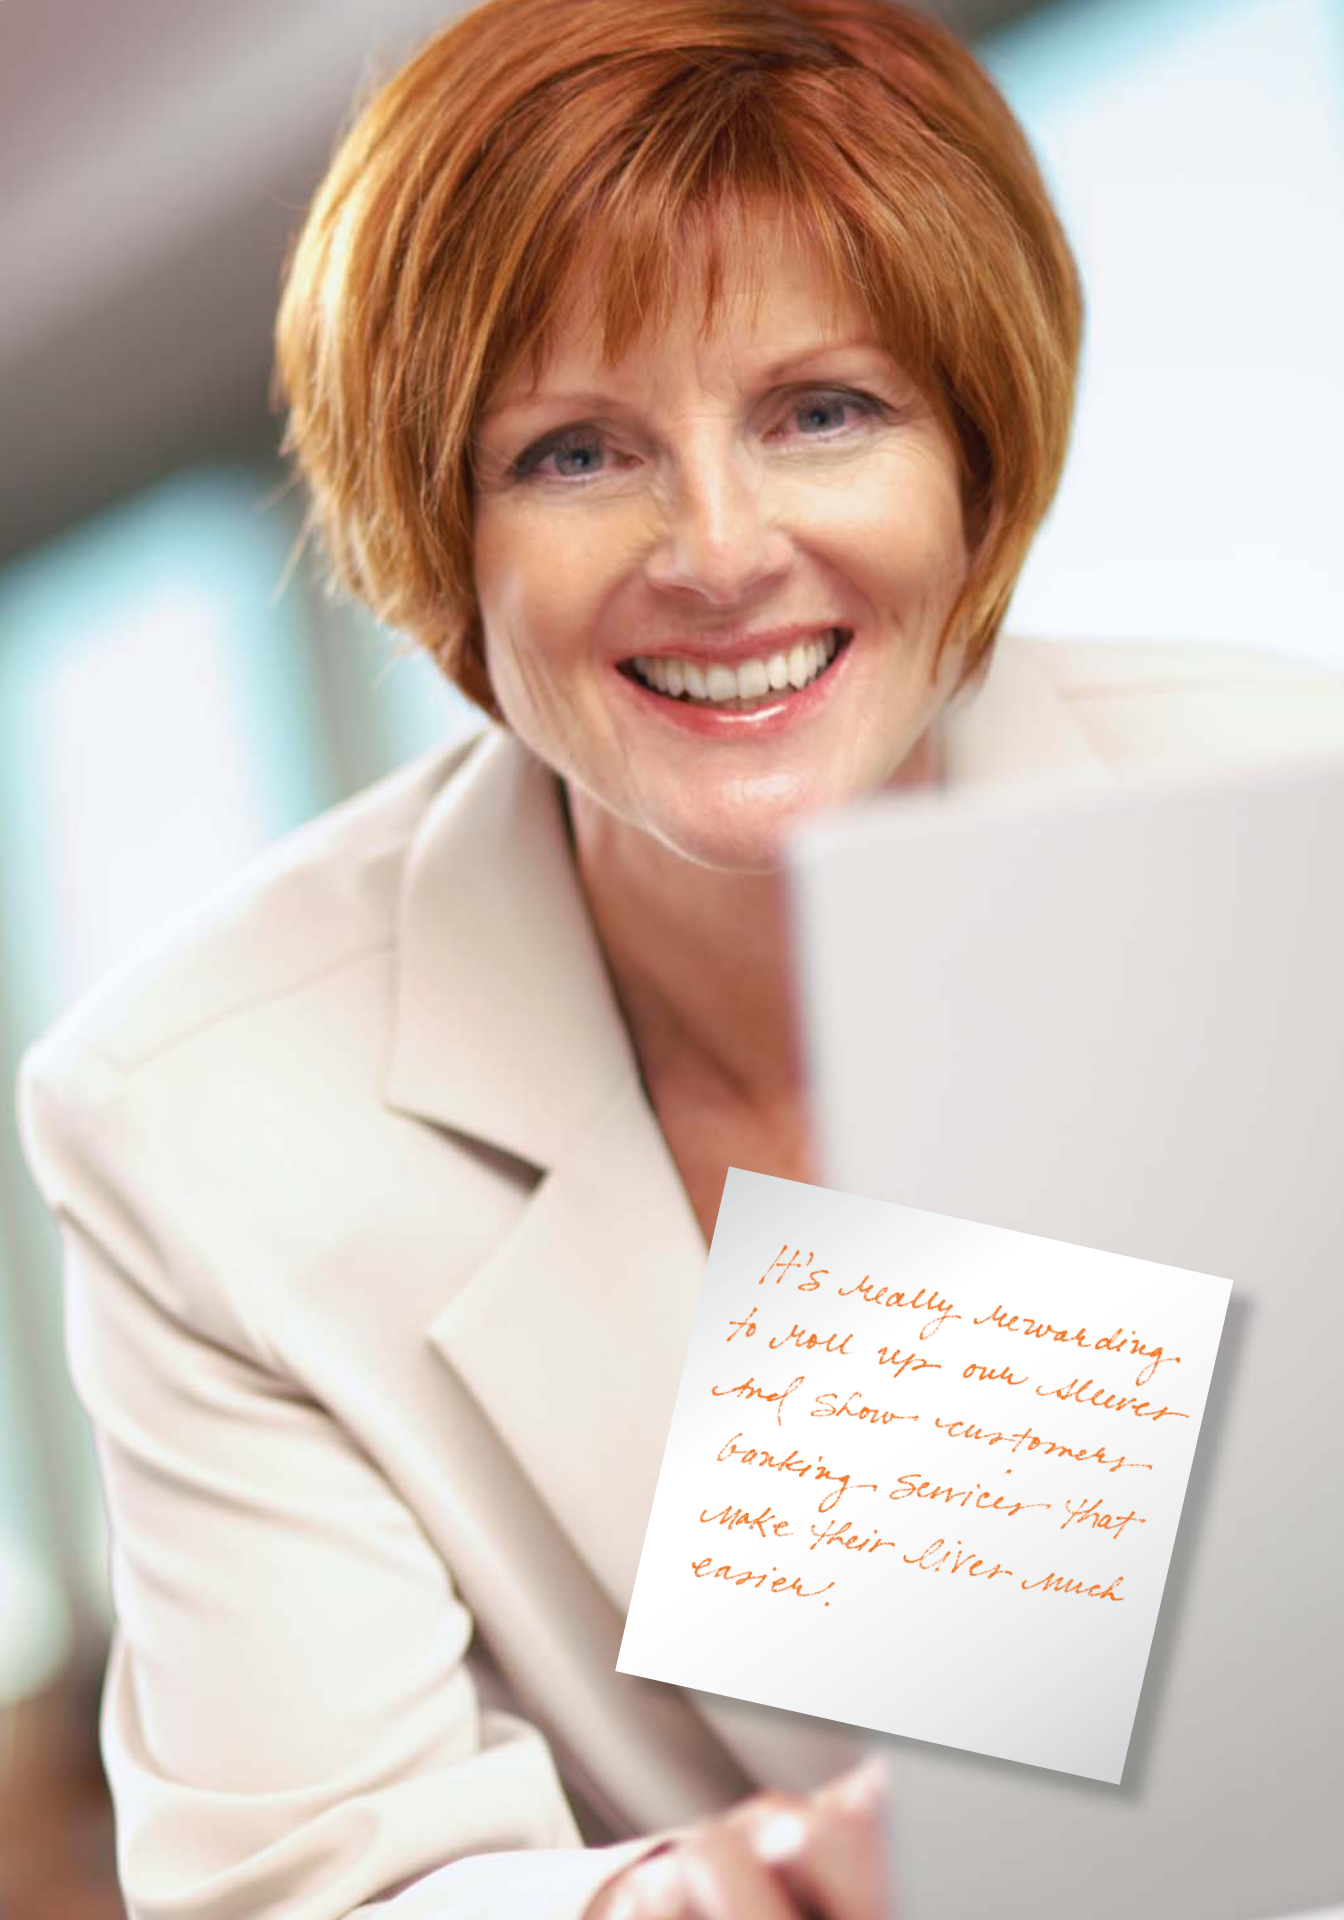 It's really rewarding
to roll up our sleeves
and show customers
banking services that
make their lives much
easier!